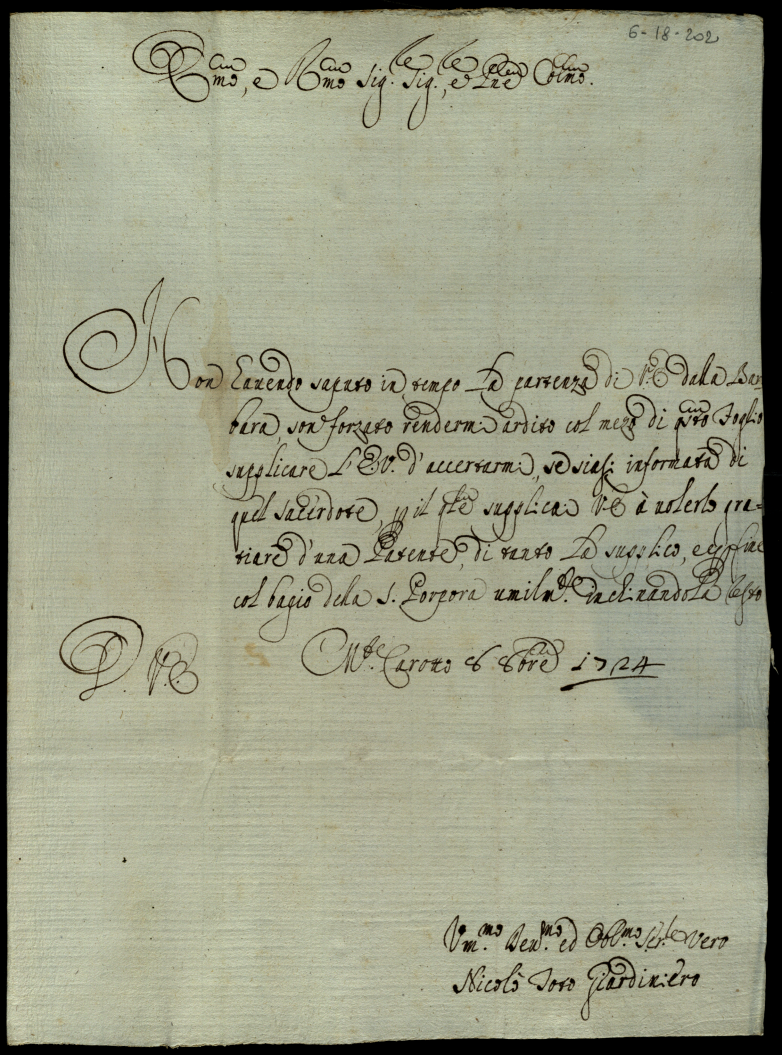 6-18-202
E.mo, e R.mo Sig.r Sig.r, e P.ne Col.mo
Non havendo saputo in tempo la partenza di V.E. dalla Bar=
bara, son forzato rendermi ardito col mezo di q.sto foglio
supplicare l'E.V. d'accertarmi, se siasi informata di
quel sacerdote, p il q.le supplicai V.E. à volerlo gra=
tiare d'una Patente, di tanto la supplico, e p fine
col bagio della S. Porpora umilm.te inchinandola resto
D. V.E. M.te Carotto 8 8bre 1724
Um.mo Dev.mo ed Obl.mo Ser.le Vero
Nicolò Toto Giardiniero